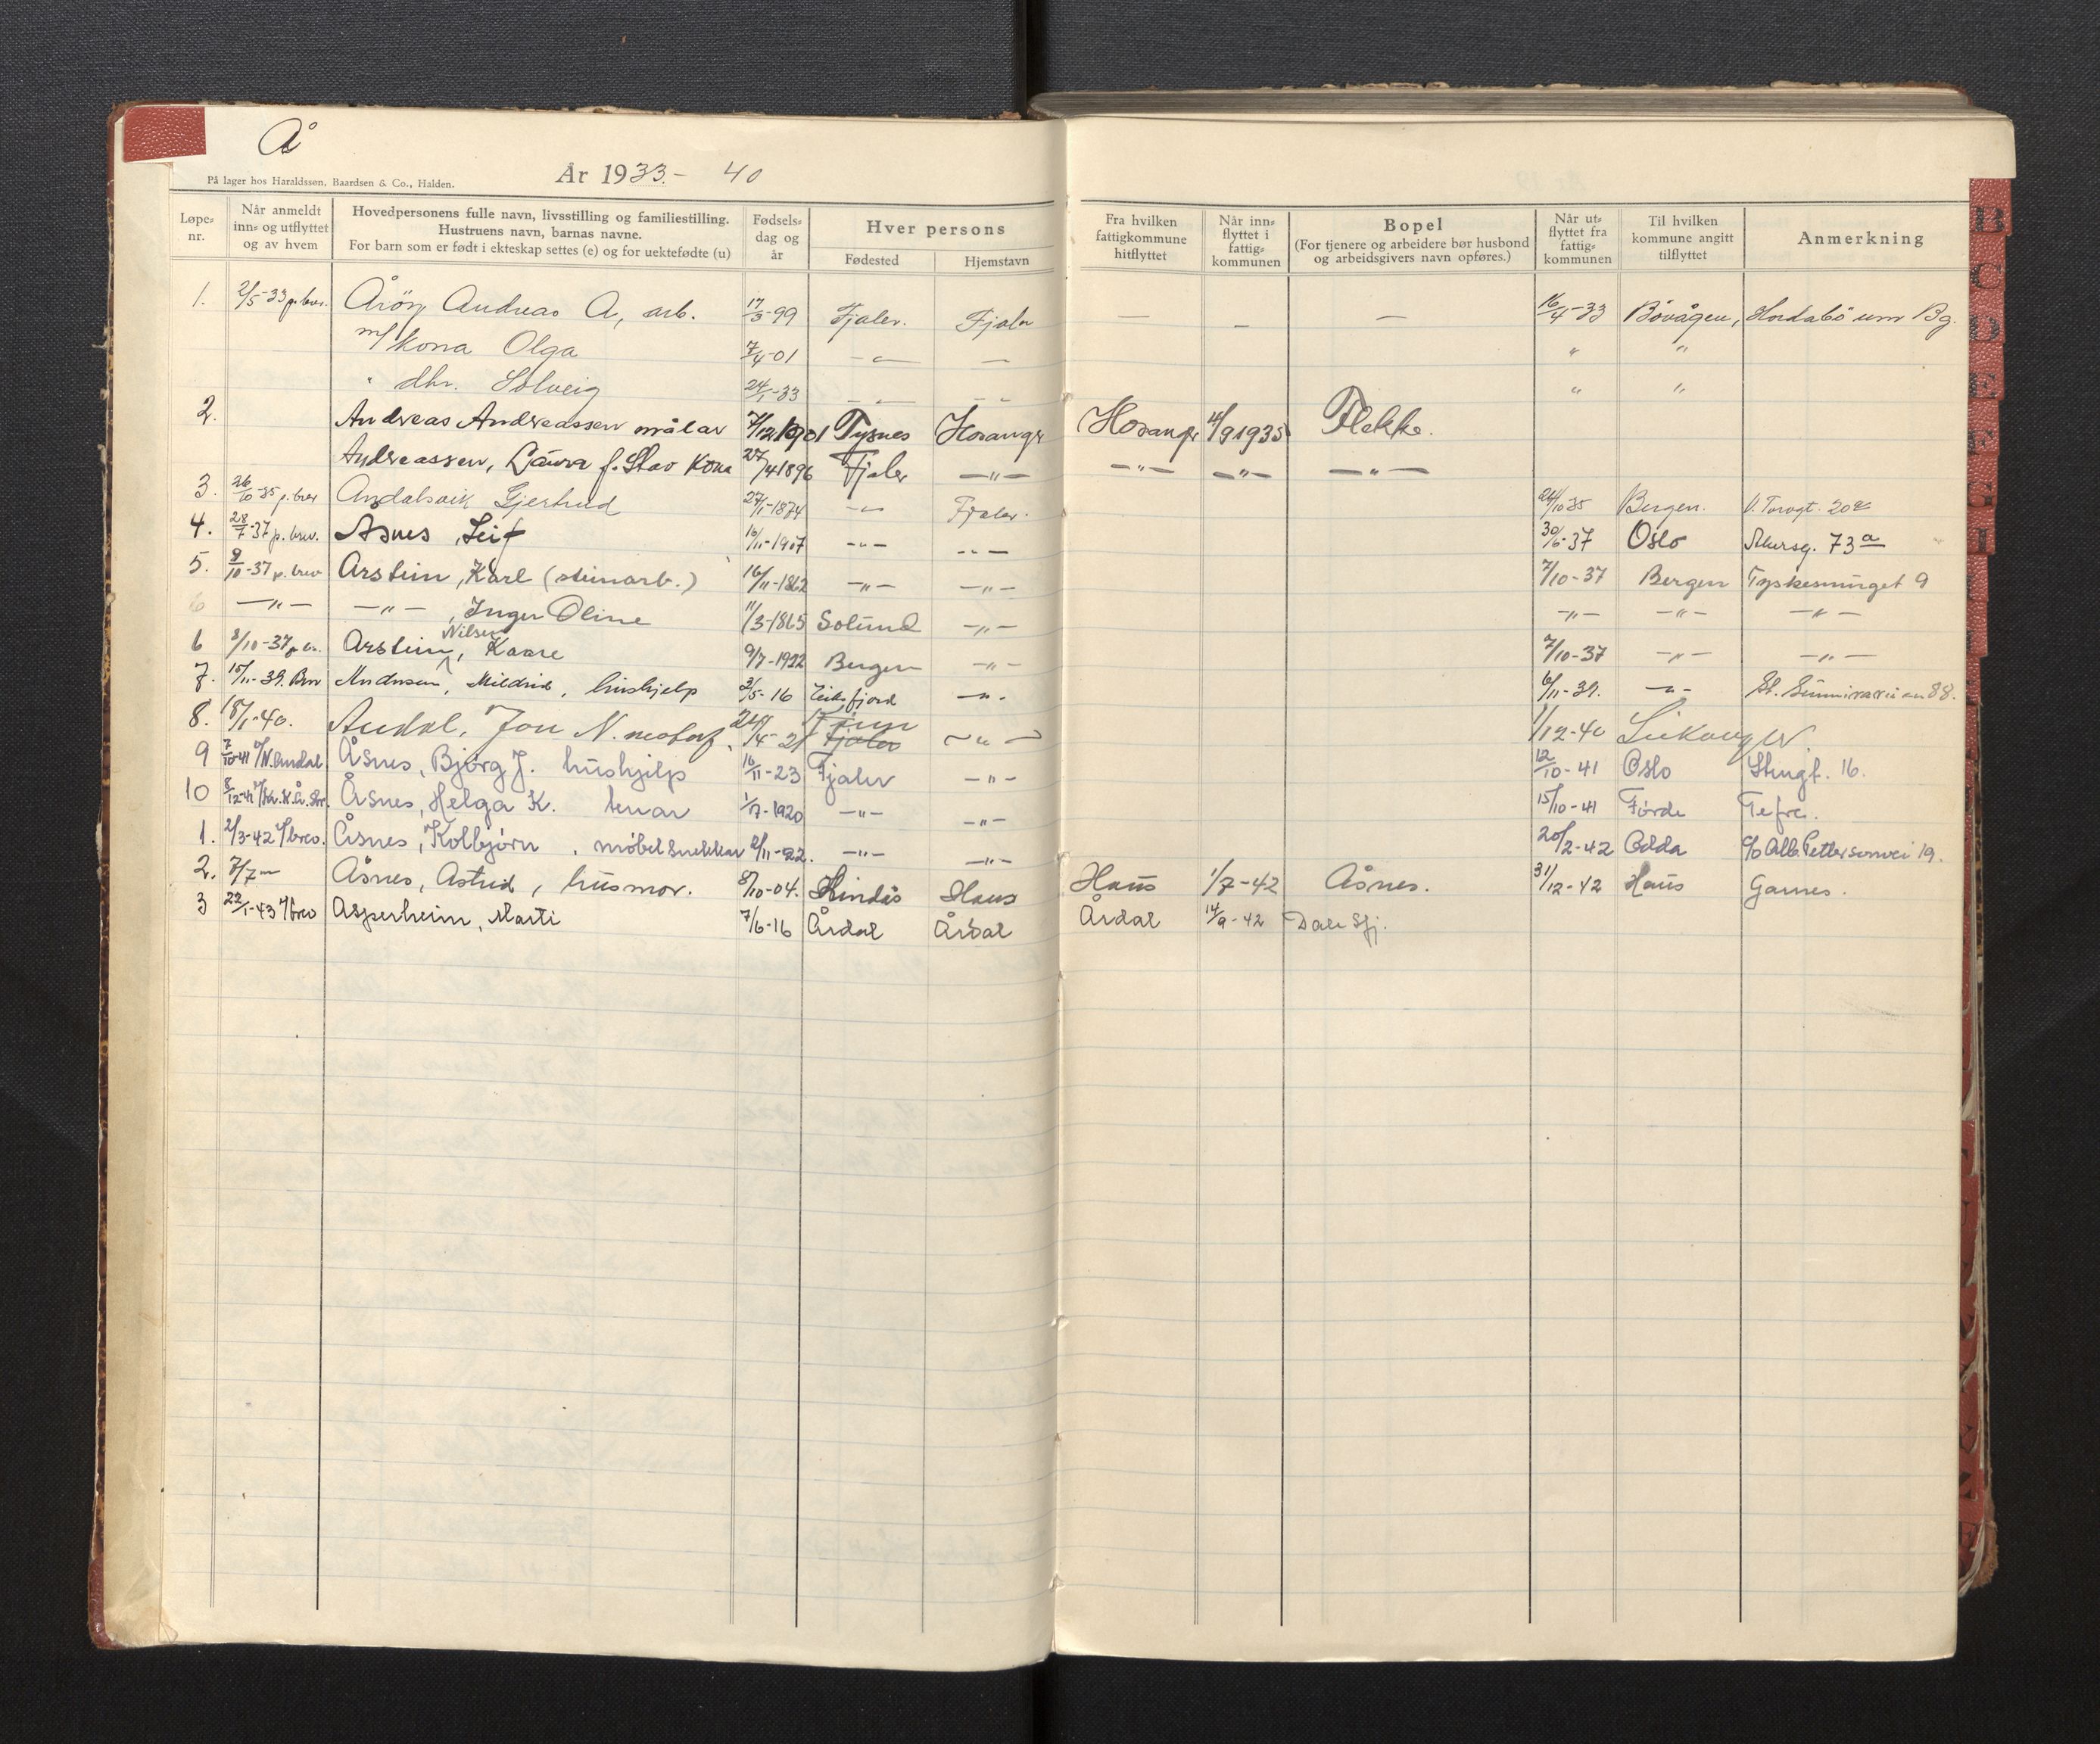 Å
På lager hos Haraldssen, Baardsen & Co., Halden.
År 1933.- 40
Løpe-nr. Når anmeldt inn- og utflyttet og av hvem Hovedpersonens fulle navn, livsstilling og familiestilling. Hustruens navn, barnas navne. For barn som er født i ekteskap settes (e) og for uektefødte (u) Fødsels-dag og år Hver persons Fødested Hjemstavn Fra hvilken fattigkommune hitflyttet Når inn-flyttet i fattig-kommunen Bopel (For tjenere og arbeidere bør husbond og arbeidsgivers navn opføres.) Når ut-flyttet fra fattig-kommunen Til hvilken kommune angitt tilflyttet Anmerkning
1. 2/5-33 p. brev. Åröy Andreas A, arb. 17/3-99 Fjaler. Fjaler — — — 16/4-33 Bövågen, Hordabö um Bg.
m/ kona Olga 7/4-01 —"— — " "
" dtr. Solveig 24/1-33 —"— —"— " "
2. Andreas Andreassen målar 7/12 1901 Tysnes Hosanger Hosanger 4/9 1935 Flekke.
Andreassen, Laura f. Stav Kona 27/4 1896 Fjaler —"— —"— —"— —"—
3. 26/10-35 p. brev Andalsvik Gjertrud 27/1-1874 —"— Fjaler. 24/10 35 Bergen. V. Torvgt. 20c
4. 28/7-37 p. brev. Åsnes, Leif 16/11-1907 —"— —"— 30/6-37 Oslo Akersg. 73a
5. 9/10-37 p. brev Arstein, Karl (steinarb.) 16/11-1862 —"— —"— 7/10-37 Bergen Tyskesmuget 9
6 —"— —"—, Inger Oline 11/3-1865 Solund —"— —"— —"— —"—
6 8/10-37 p. br. Arstein Nilsen, Kaare 9/7-1922 Bergen —"— 7/10-37 —"— —"—
7. 15/11-39. Brev Andersen, Mildrid, hushjelp 3/5-16 Eikefjord —"— 6/11-39. —"— 88.
8. 18/1-40. Andal, Jon N. 24/4-21 Fjaler —"— 1/12-40
9 7/10-41 v/N. Åsnes, Bjørg J. hushjelp 16/11-23 Fjaler —"— 12/10-41 Oslo 16.
10 8/12-41 Åsnes, Helga K. tenar 1/7-1920 —"— —"— 15/10-41 Førde Tefre.
1. 2/3-42 v/brev. Åsnes, Kolbjørn, møbelsnekkar 2/11-22. —"— —"— 20/2-42 Odda c/o Alb. Pettersonvei 19.
2. 7/7 Åsnes, Astrid, husmor. 8/10-04. Lindås Haus Haus 1/7-42 Åsnes. 31/12-42 Haus Garnes.
3 22/1-43 v/brev Asperheim, Marti 7/6-16 Årdal Årdal Årdal 14/9-42 Dale Sfj.
B
C
D
E
F
G
I